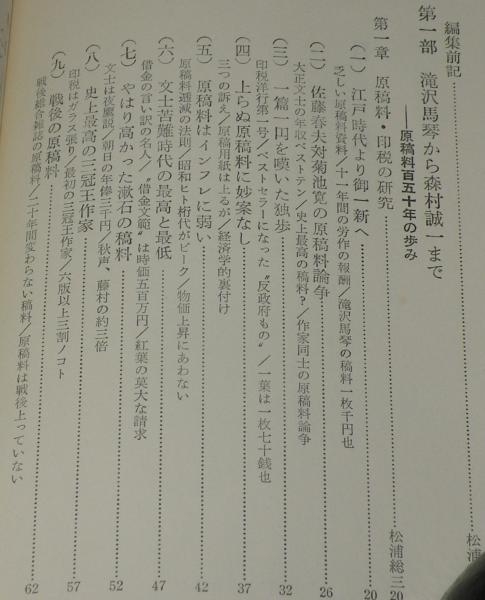 編集前記 松浦
第一部 滝沢馬琴から森村誠一まで
――原稿料百五十年の歩み
第一章 原稿料・印税の研究 松浦総三 20
(一) 江戸時代より御一新へ 20
乏しい原稿料資料／十一年間の労作の報酬／滝沢馬琴の稿料一枚千円也
(二) 佐藤春夫対菊池寛の原稿料論争 26
大正文士の年収ベストテン／史上最高の稿料？／作家同士の原稿料論争
(三) 一篇一円を嘆いた独歩 32
印税洋行第一号／ベストセラーになった〝反政府もの〟／一葉は一枚七十銭也
(四) 上らぬ原稿料に妙案なし 37
三つの訴え／原稿用紙は上るが／経済学的裏付け
(五) 原稿料はインフレに弱い 42
原稿料逓減の法則／昭和ヒト桁代がピーク／物価上昇にあわない
(六) 文士苦難時代の最高と最低 47
借金の言い訳の名人／〝借金文範〟は時価五百万円／紅葉の莫大な請求
(七) やはり高かった漱石の稿料 52
文士は夜鷹説／朝日の年俸三千円／秋声、藤村の約三倍
(八) 史上最高の三冠王作家 57
印税はガラス張り／最初の三冠王作家／六版以上三割ノコト
(九) 戦後の原稿料 62
戦後総合雑誌の原稿料／二十年間変わらない稿料／原稿料は戦後上っていない